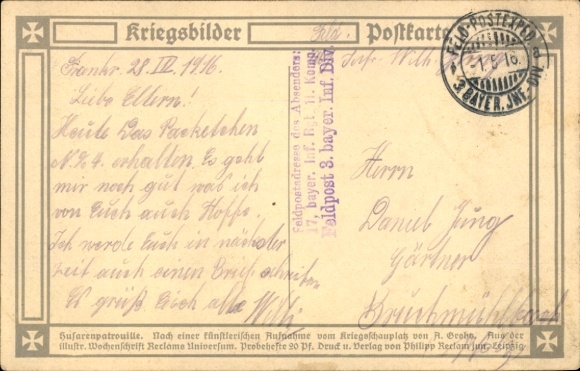 Kriegsbilder Feld Postkarte
FELD-POSTEXPED
3. BAYER. INF. DIV.
Frankr. 28 IV. 1916.
Liebe Eltern!
Heute Das Packetchen
N. 4. erhalten. Es geht
mir noch gut was ich
von Euch auch Hoffe.
Ich werde Euch in nächster
zeit auch einen Brief schreiben
Es grüßt Euch alle Willi
Feldpostadresse des Absenders:
17. bayer. Inf. Rgt. 11. Komp.
Feldpost 3. bayer. Inf. Div.
Herrn
Daniel Jung
Gärtner
Bruchmühlbach
Husarenpatrouille. Nach einer künstlerischen Aufnahme vom Kriegsschauplatz von A. Grohs. Aus der
illustr. Wochenschrift Reclams Universum. Probehefte 20 Pf. Druck u. Verlag von Philipp Reclam jun. Leipzig.